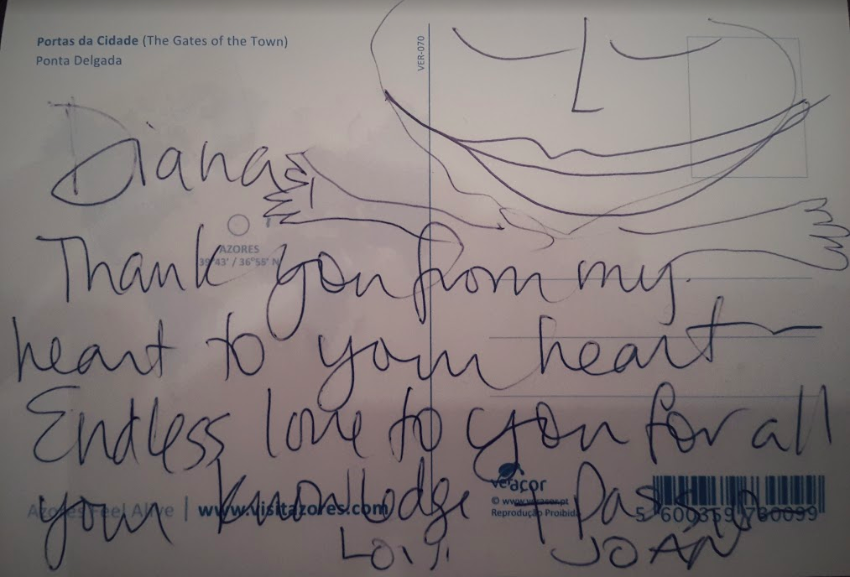 Portas da Cidade (The Gates of the Town)
Ponta Delgada
VER-070
Diana
AZORES
Thank you from my
heart to your heart
Endless love to you for all
your knowledge +
veraçor
© www.veracor.pt
Reprodução Proibida
Azores Feel Alive | www.visitazores.com
5 600359 780099
JOAN